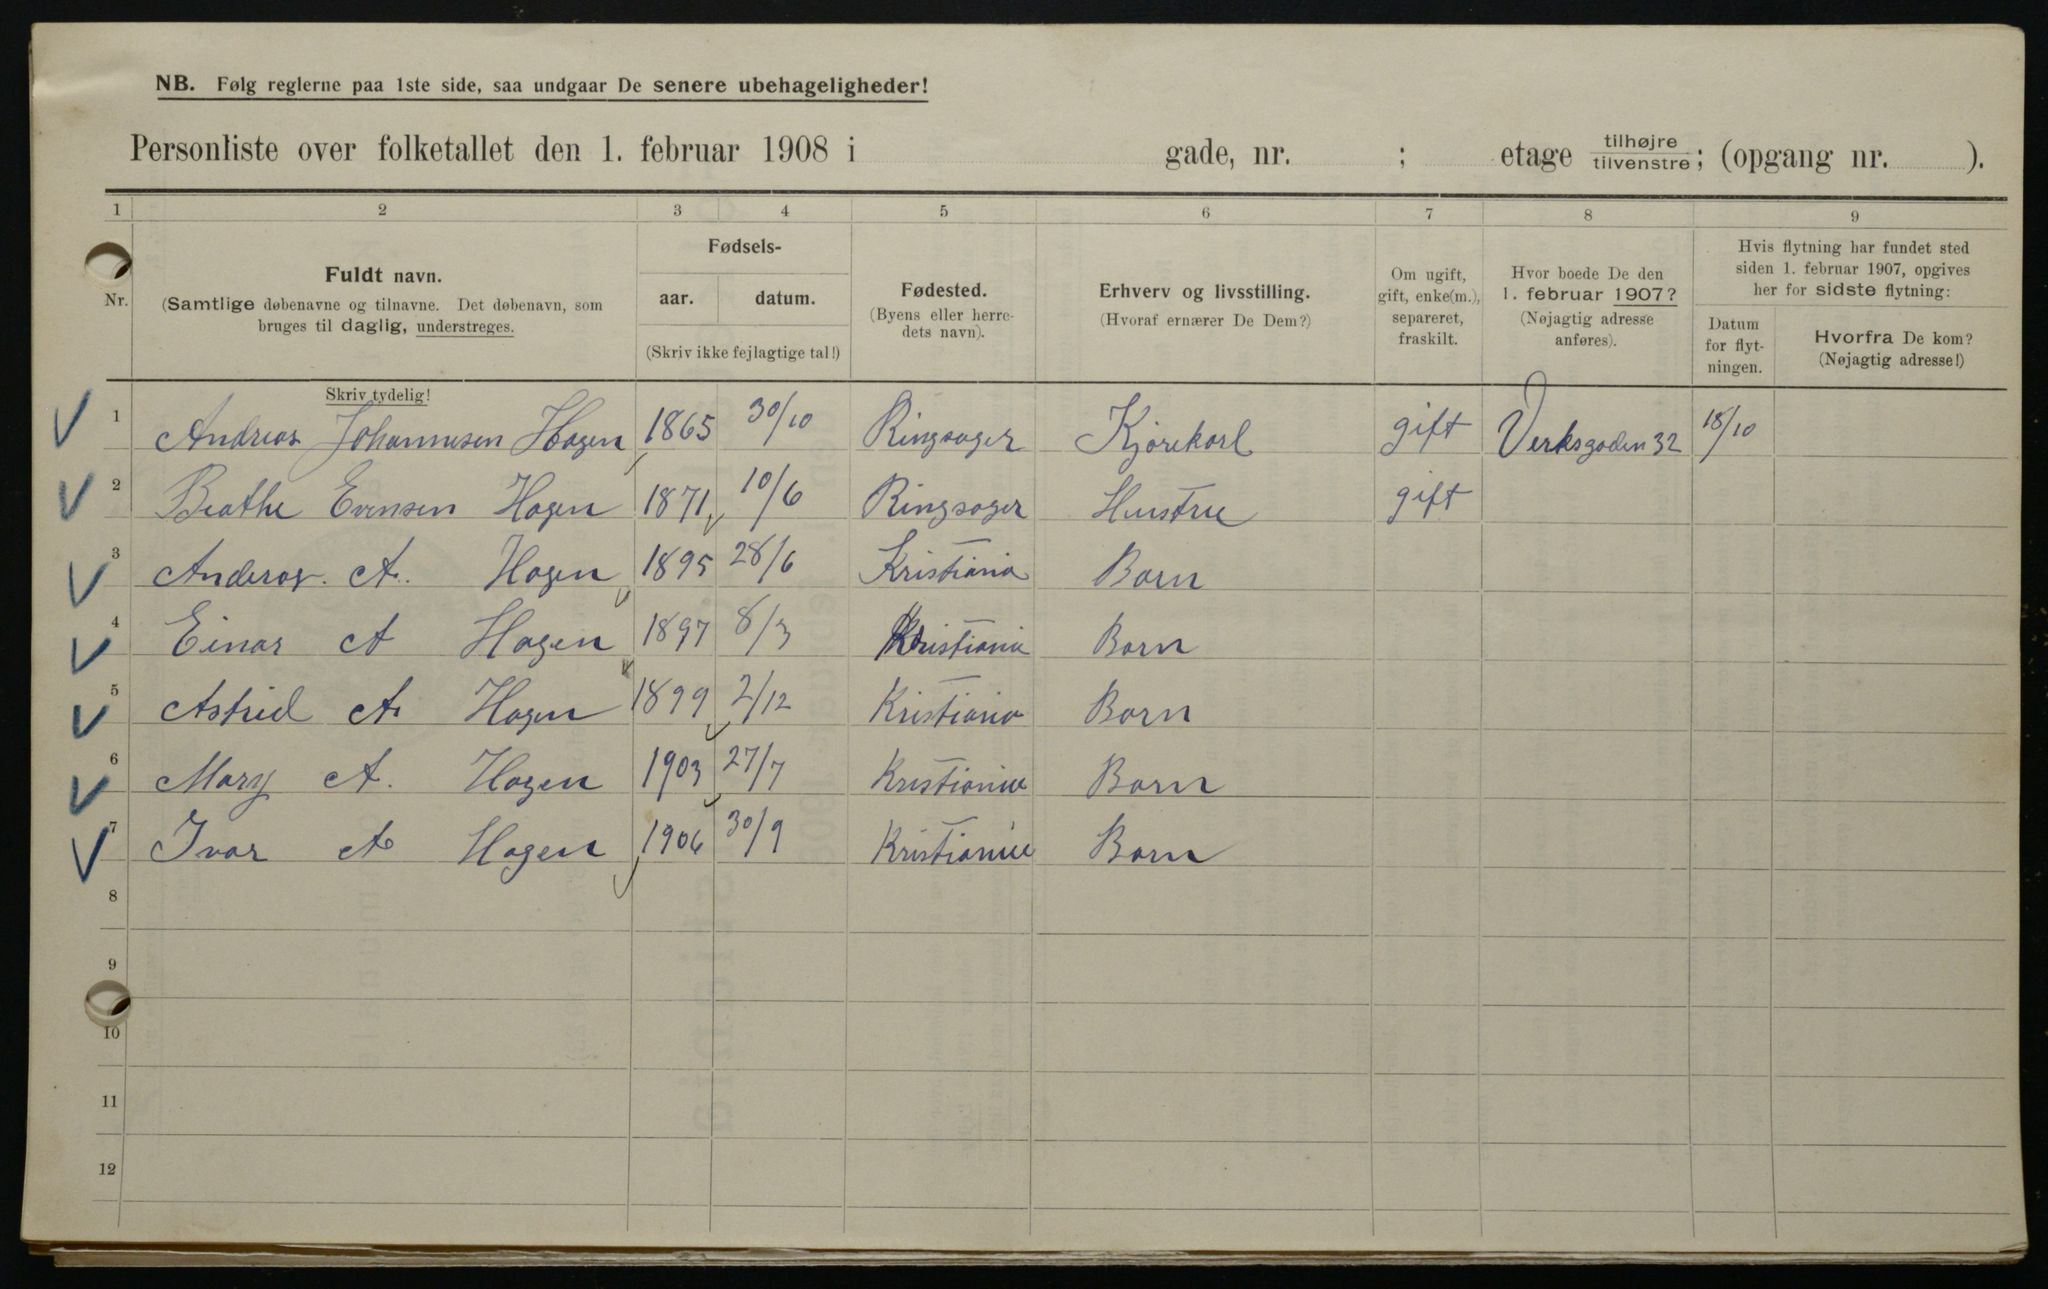 NB. Følg reglerne paa 1ste side, saa undgaar De senere ubehageligheder!
Personliste over folketallet den 1. februar 1908 i gade, nr. ; etage tilhøjre/tilvenstre; (opgang nr. ).
1 2 3 4 5 6 7 8 9
Nr.
Fuldt navn.
(Samtlige døbenavne og tilnavne. Det døbenavn, som
bruges til daglig, understreges.
Skriv tydelig!
Fødsels-
aar. datum.
(Skriv ikke fejlagtige tal!)
Fødested.
(Byens eller herre-
dets navn).
Erhverv og livsstilling.
(Hvoraf ernærer De Dem?)
Om ugift,
gift, enke(m.),
separeret,
fraskilt.
Hvor boede De den
1. februar 1907?
(Nøjagtig adresse
anføres).
Hvis flytning har fundet sted
siden 1. februar 1907, opgives
her for sidste flytning:
Datum
for flyt-
ningen.
Hvorfra De kom?
(Nøjagtig adresse!)
1 Andreas Johannesen Hagen 1865 30/10 Ringsager Kjørekarl gift Verksgaden 32 18/10
2 Beathe Evensen Hagen 1871 10/6 Ringsager Hustru gift
3 Anderas. A. Hagen 1895 28/6 Kristiania Barn
4 Einar A Hagen 1897 8/3 Kristiania Barn
5 Astrid A Hagen 1899 2/12 Kristiania Barn
6 Mary A. Hagen 1903 27/7 Kristiania Barn
7 Ivar A Hagen 1906 30/9 Kristiania Barn
8
9
10
11
12